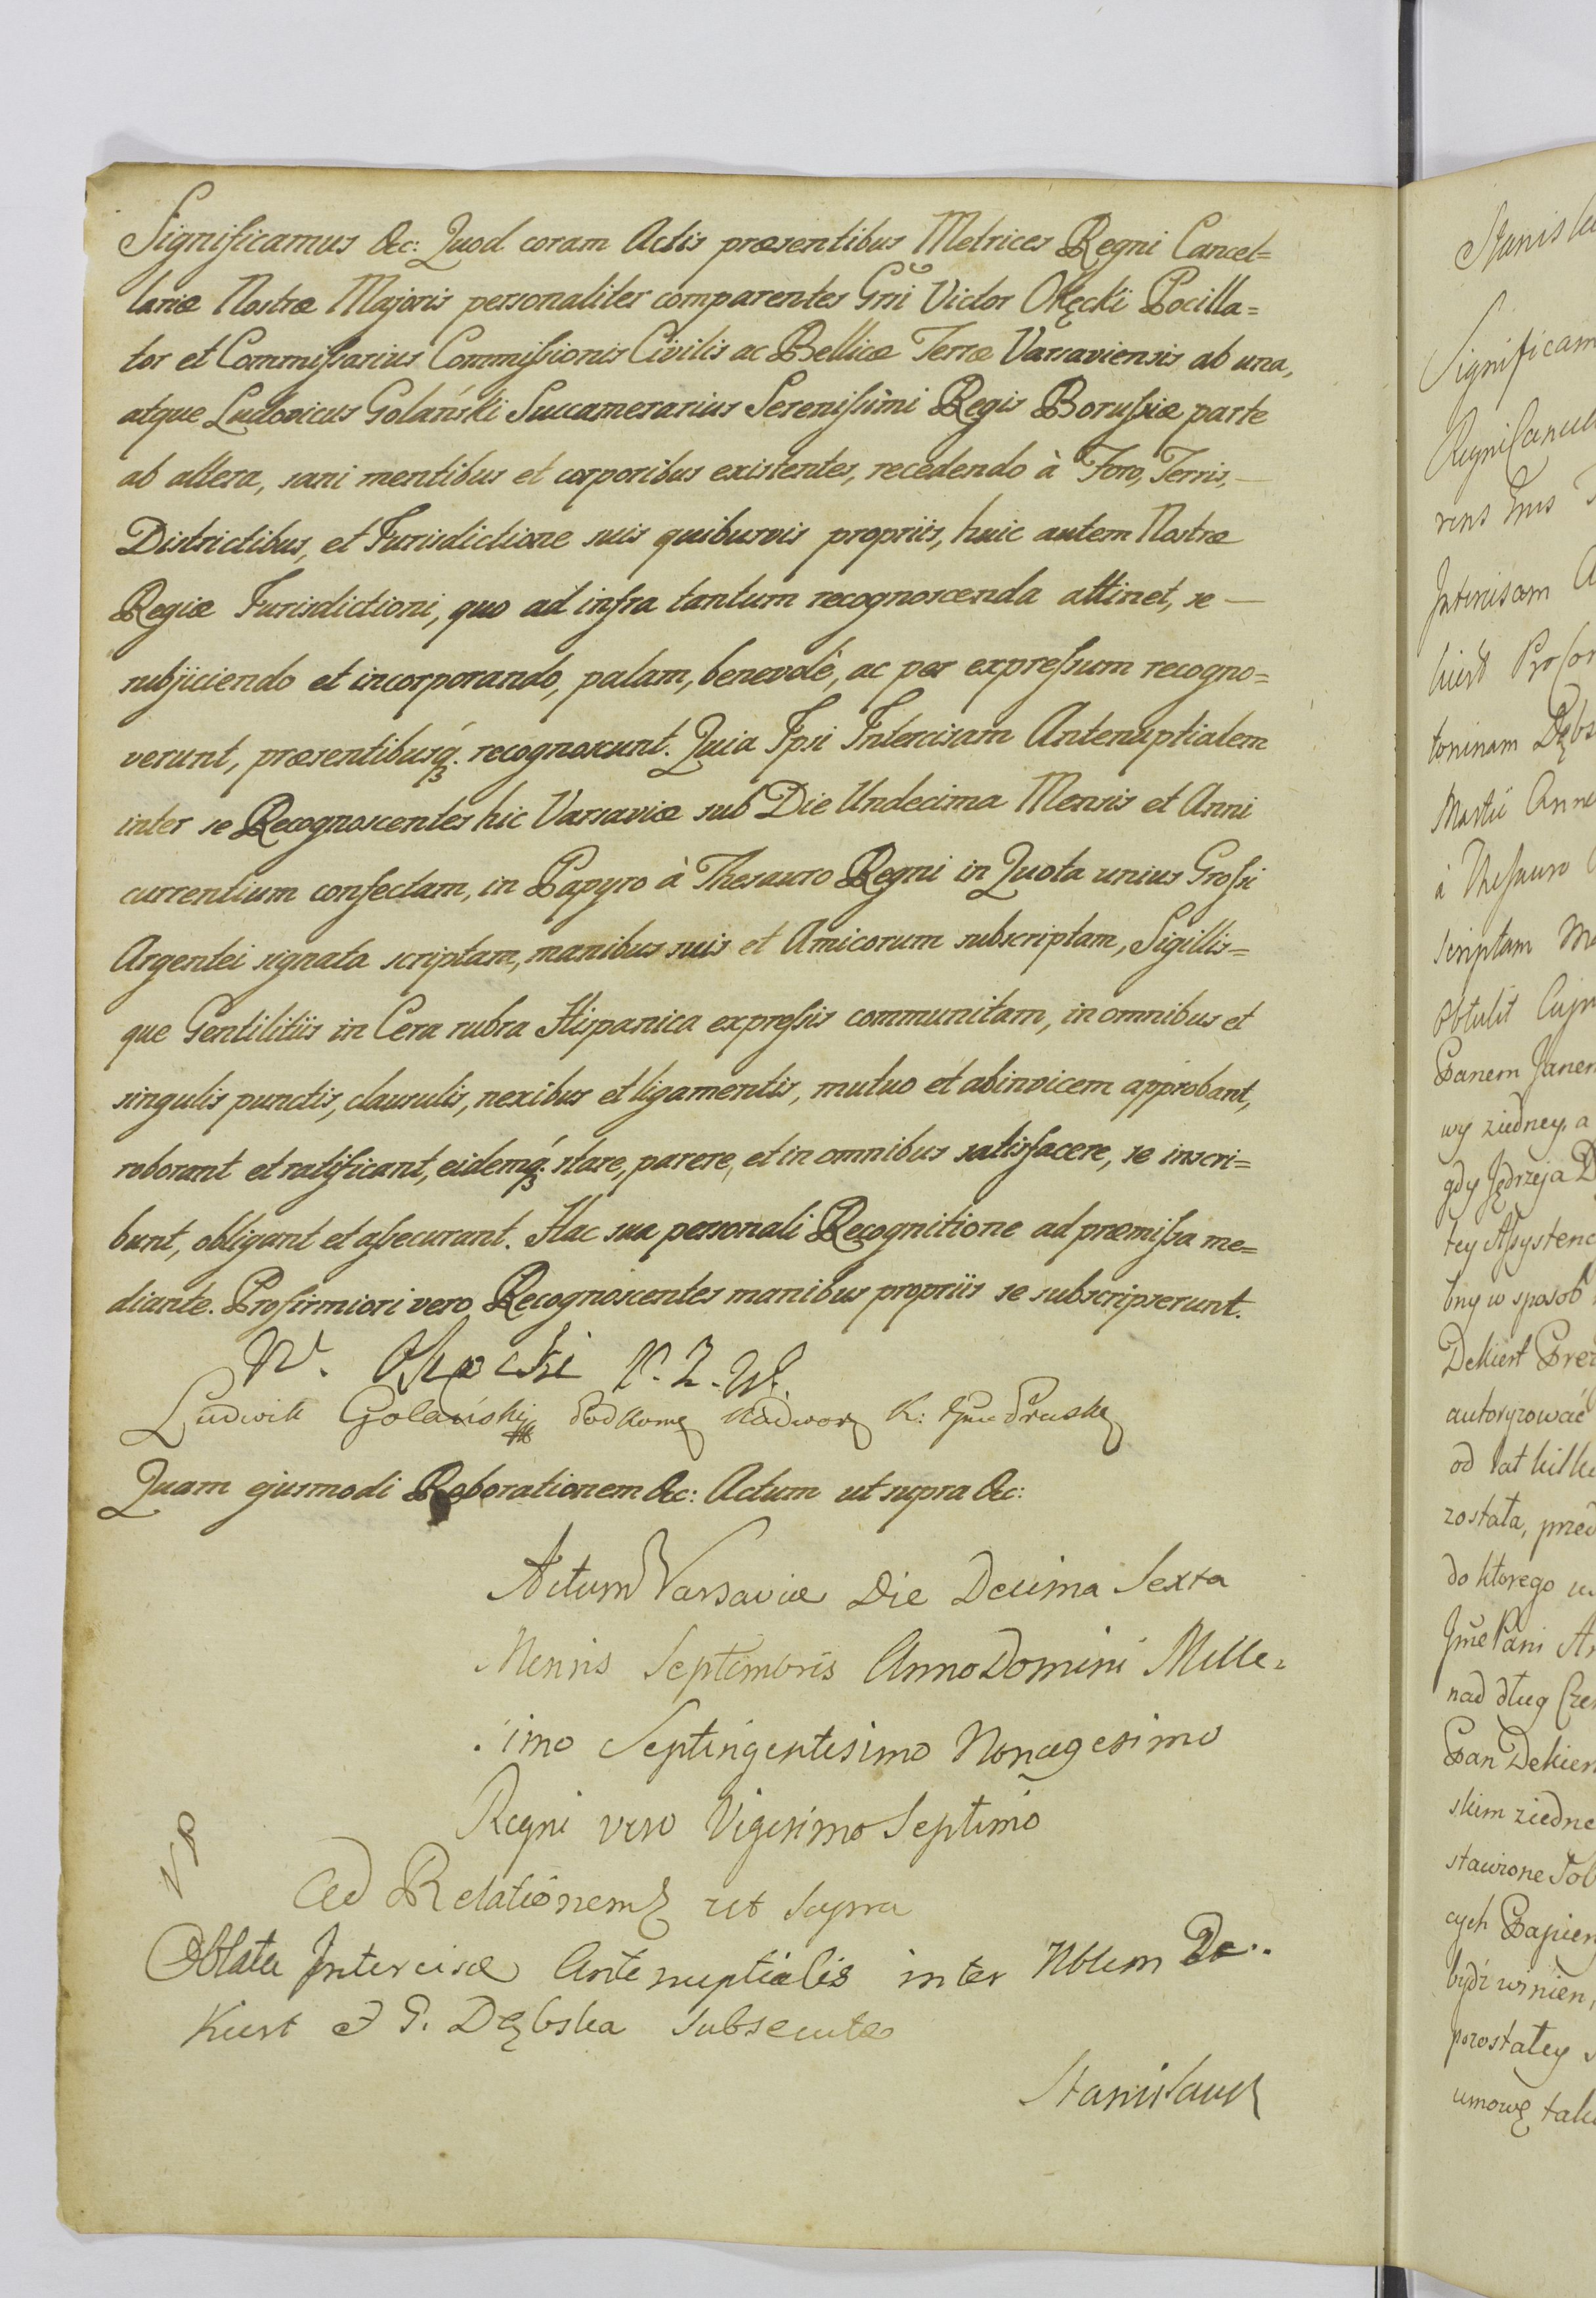 Significamus &c: Quod coram Actis præsentibus Metrices Regni Cancel=
lariæ Nostræ Majoris personaliter comparentes Gñi Victor Okęcki Pocilla=
tor et Commissarius Commissionis Civilis ac Bellicæ Terræ Varsaviensis ab una,
atque Ludovicus Golański Succamerarius Serenissimi Regis Borussiæ parte
ab altera, sani mentibus et corporibus existentes, recedendo à Foro, Terris, —
Districtibus, et Jurisdictione suis quibusvis propriis, huic autem Nostræ
Regiæ Jurisdictioni, quo ad infra tantum recognoscenda attinet, se —
subjiciendo et incorporando, palam, benevolè, ac per expressum recogno=
verunt, præsentibusq́. recognoscunt. Quia Ipsi Intercisam Antenuptialem
inter se Recognoscentes hic Varsaviæ sub Die Undecima Mensis et Anni
currentium confectam, in Papyro à Thesauro Regni in Quota unius Grossi
Argentei signata scriptam, manibus suis et Amicorum subscriptam, Sigillis=
que Gentilitiis in Cera rubra Hispanica expressis communitam, in omnibus et
singulis punctis, clausulis, nexibus et ligamentis, mutuo et abinvicem approbant,
roborant et ratificant, eidemq́. stare, parere, et in omnibus satisfacere, se inscri=
bunt, obligant et assecurant. Hac sua personali Recognitione ad præmissa me=
diante. Pro firmiori vero Recognoscentes manibus propriis se subscripserunt.
W. Okęcki P. Z. W.
Ludwik Golański Podkom Nadwor K: Jmci Prusk
Quam ejusmodi Roborationem &c: Actum ut supra &c:
Actum Varsaviæ Die Decima Sexta
Mensis Septembris Anno Domini Mille=
simo Septingentesimo Nonagesimo
Regni vero Vigesimo Septimo
Ad Relationem ut supra
Oblata Intercisæ Antenuptialis inter Nblem De..
Kiert et G. Dębska Subsecutæ
Stanislaus
Stanisla
Significam
Regni Cancell
rens
Intercisam A
kiert Pro
toninam Dębs
Martii Anne
à Thesauro
scriptam Ma
obtulit Cujus
Panem Janem
wy ziedney, a
gdy Jędrzeja D
tey Assystenc
bny w sposob
Dekiert Prez
autoryzować
od lat kilku
została, przed
do ktorego
Jmć Pani A
nad dług
Pan Dekiert
skim ziedne
stawione Tob
cych Papier
bydź winien,
pozostałey
umowę tak